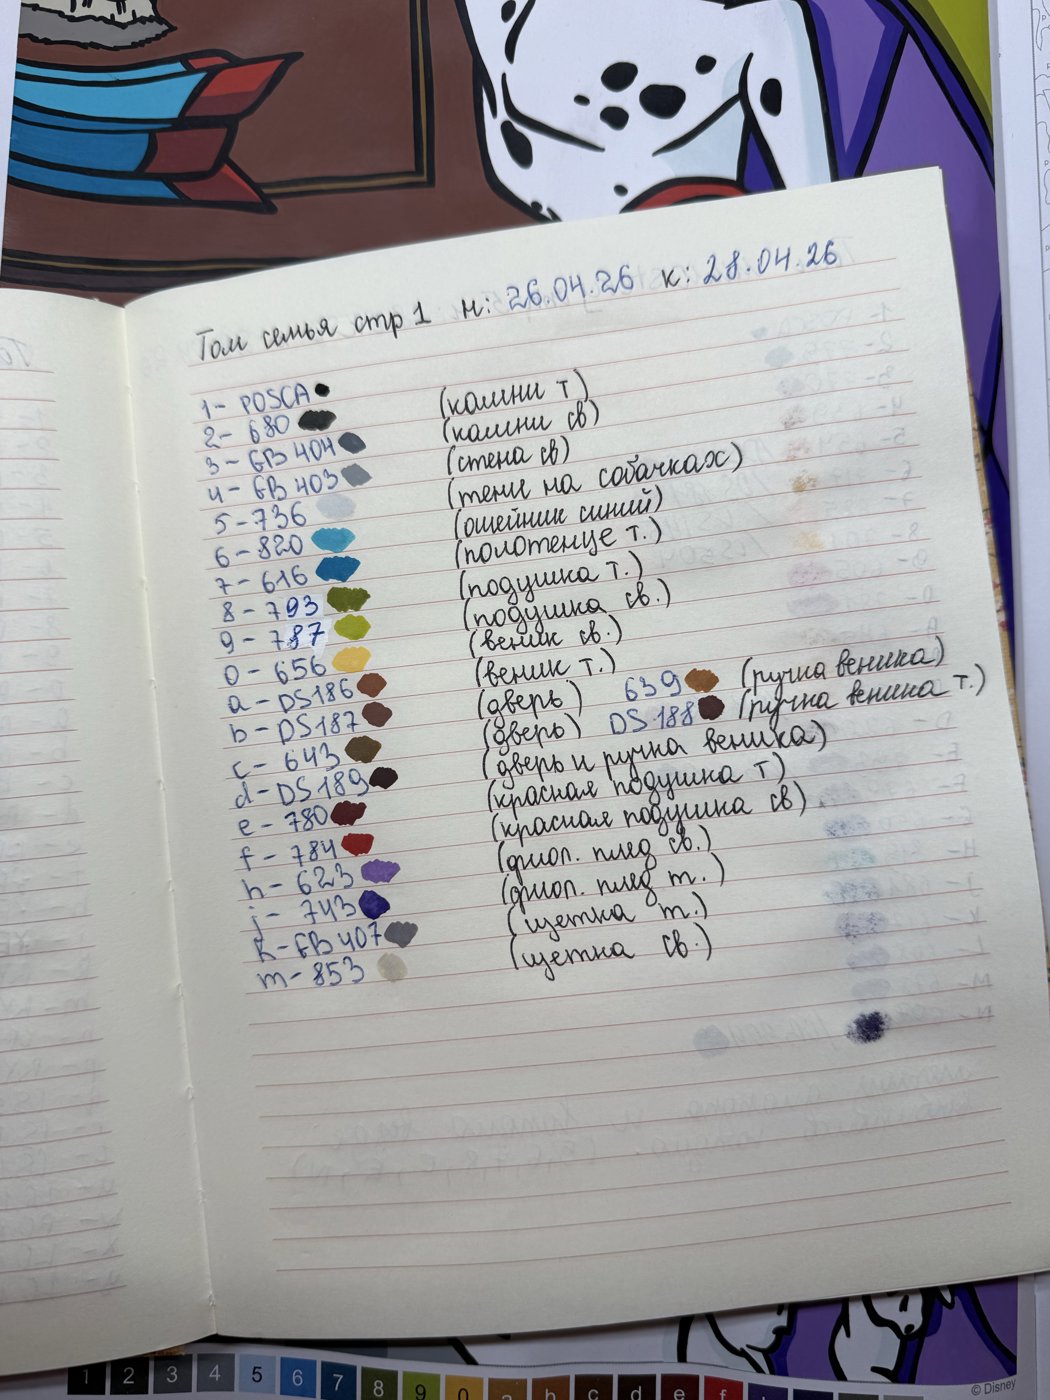 Том семья стр 1 н: 26.04.26 к: 28.04.26
1- POSCA
2- 680 (камни т)
3 - GB 404 (камни св)
4 - GB 403 (стена св)
5 - 736 (тени на собачках)
6 - 820 (ошейник синий)
7 - 616 (полотенце т.)
8 - 793 (подушка т.)
9 - 787 (подушка св.)
0 - 656 (веник св.)
a - DS186 (веник т.)
b - DS187 (дверь) 639 (ручка веника)
c - 643 (дверь) DS 188 (ручка веника т.)
d - DS189 (дверь и ручка веника)
e - 780 (красная подушка т)
f - 784 (красная подушка св)
h - 623 (фиол. плед св.)
j - 743 (фиол. плед т.)
k - GB 407 (щетка т.)
m - 853 (щетка св.)
1 2 3 4 5 6 7 8 9 0 a b c d e f
© Disney